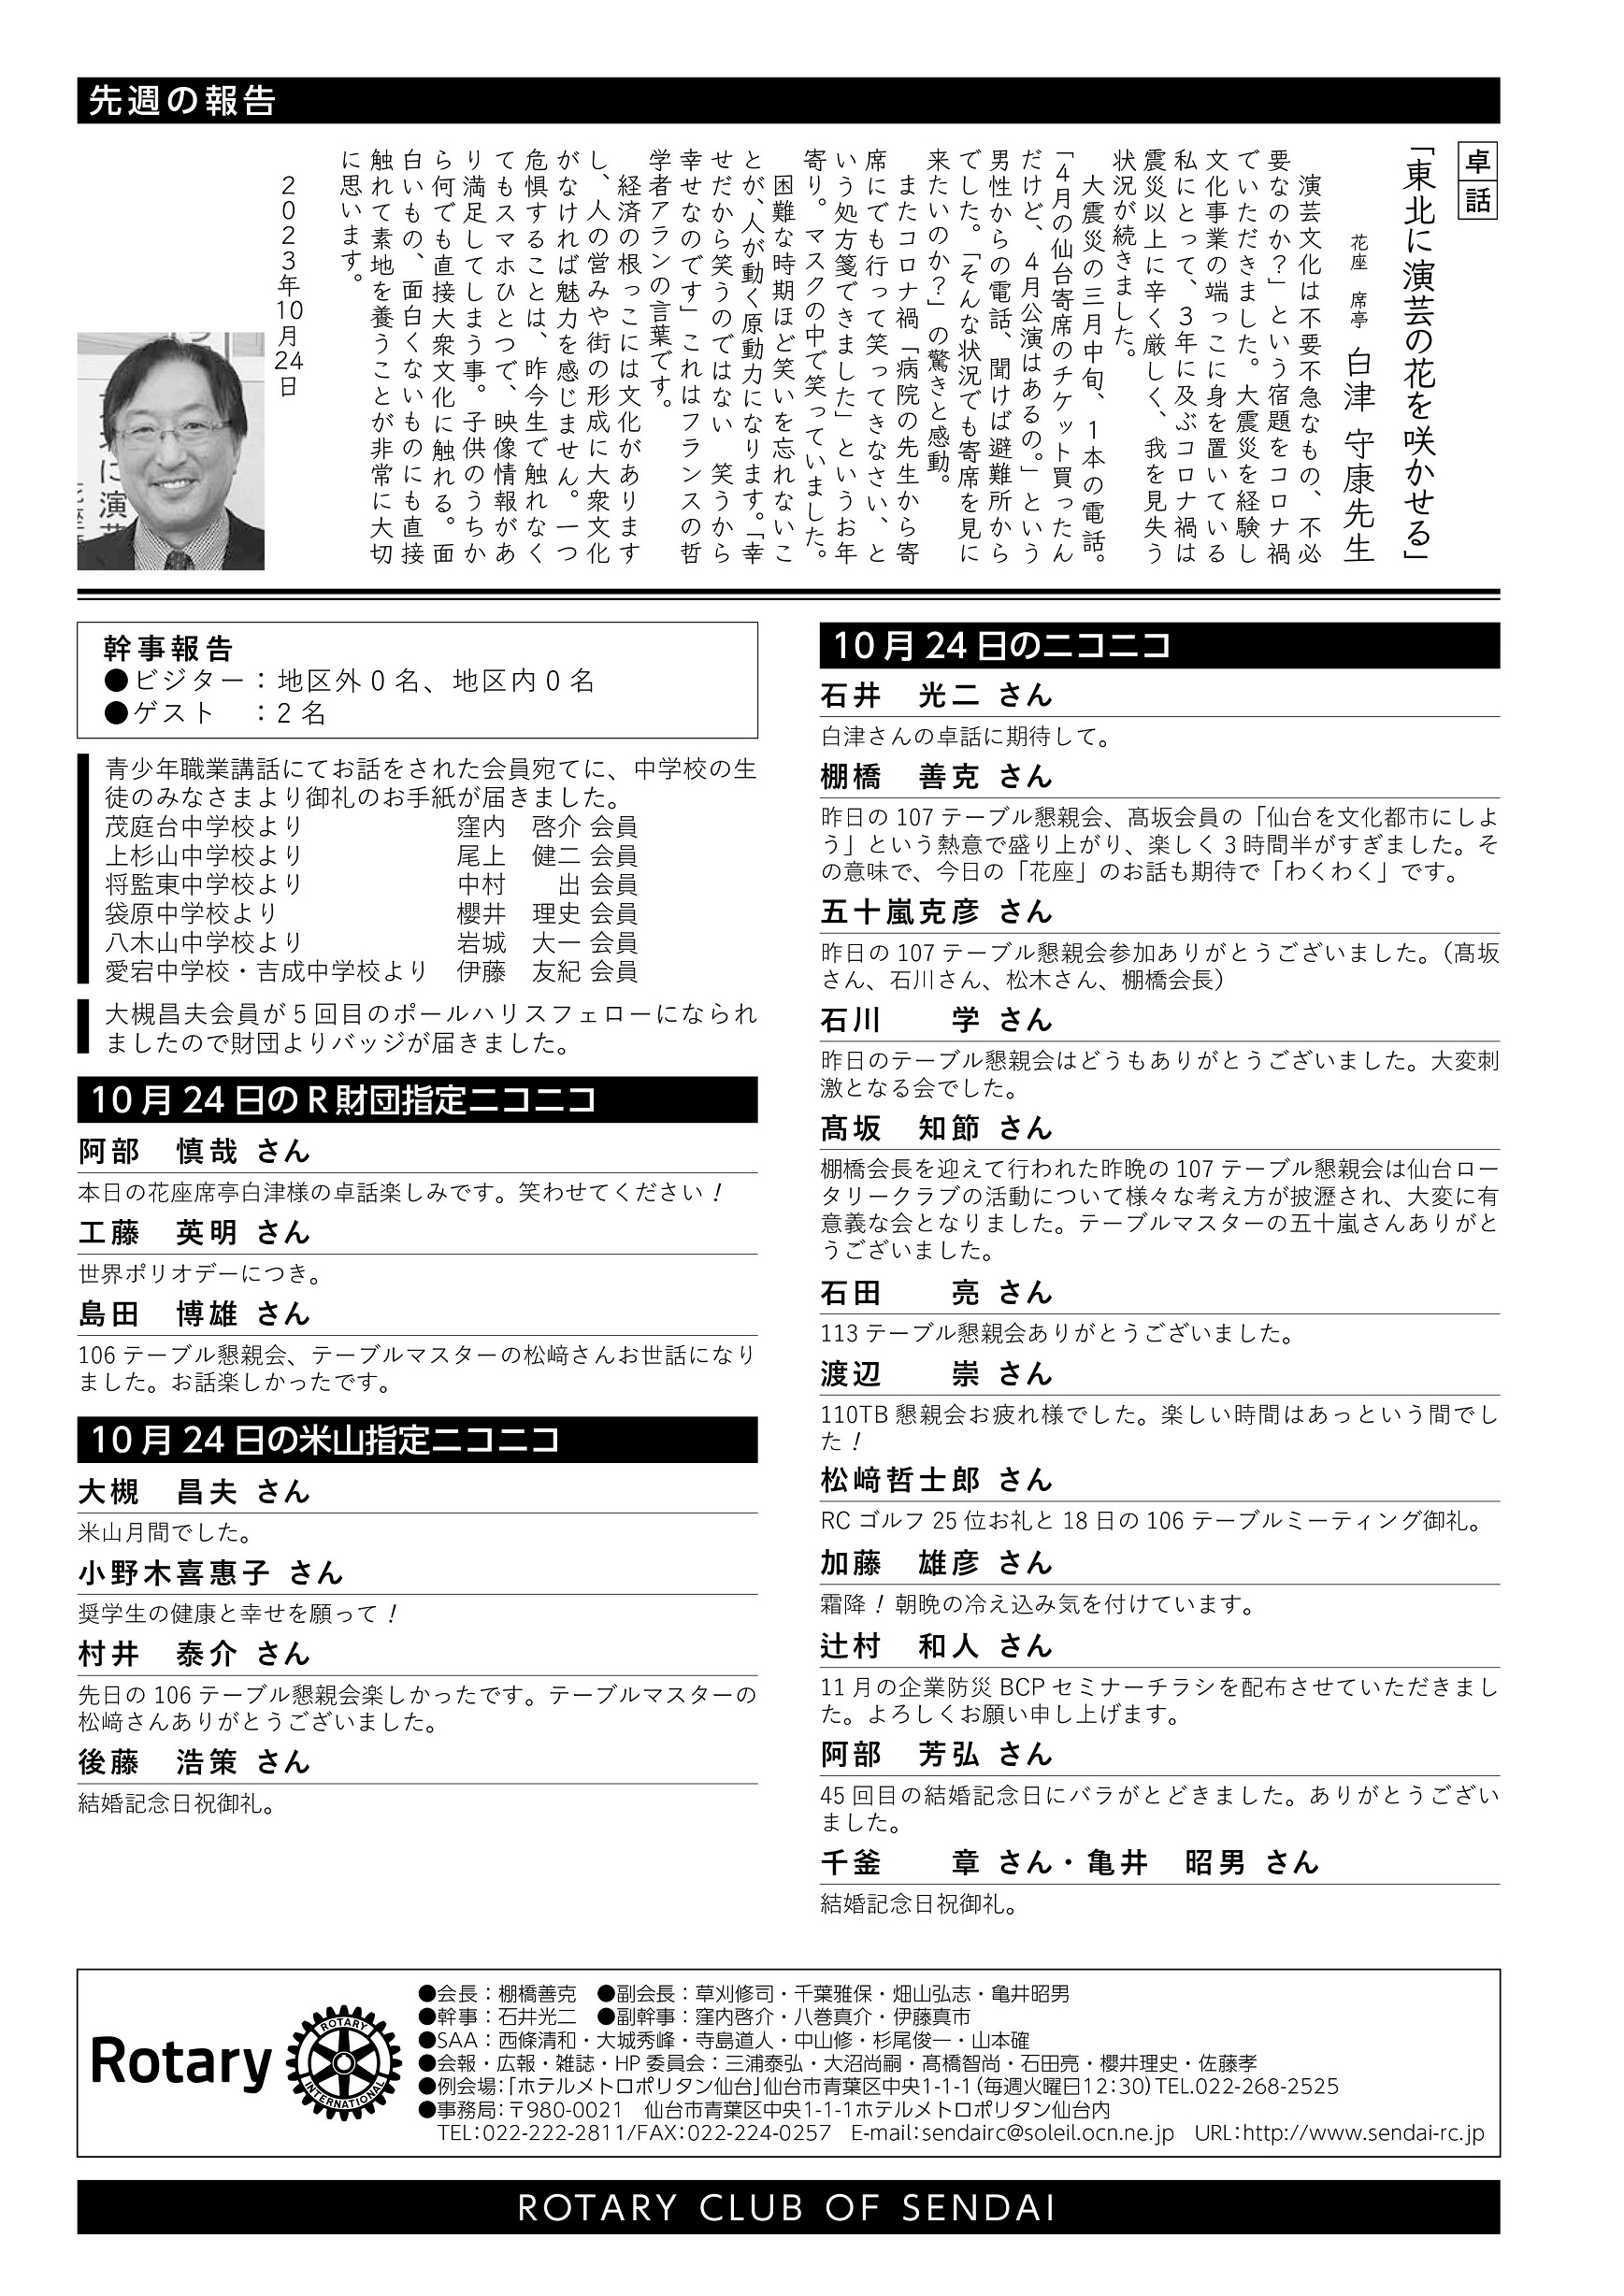 先週の報告
卓話
「東北に演芸の花を咲かせる」
花座 席亭 白津 守康先生
演芸文化は不要不急なもの、不必
要なのか？」という宿題をコロナ禍
でいただきました。大震災を経験し
文化事業の端っこに身を置いている
私にとって、３年に及ぶコロナ禍は
震災以上に辛く厳しく、我を見失う
状況が続きました。
大震災の三月中旬、１本の電話。
「４月の仙台寄席のチケット買ったん
だけど、４月公演はあるの。」という
男性からの電話、聞けば避難所から
でした。「そんな状況でも寄席を見に
来たいのか？」の驚きと感動。
またコロナ禍「病院の先生から寄
席にでも行って笑ってきなさい、と
いう処方箋できました」というお年
寄り。マスクの中で笑っていました。
困難な時期ほど笑いを忘れないこ
とが、人が動く原動力になります。「幸
せだから笑うのではない 笑うから
幸せなのです」これはフランスの哲
学者アランの言葉です。
経済の根っこには文化があります
し、人の営みや街の形成に大衆文化
がなければ魅力を感じません。一つ
危惧することは、昨今生で触れなく
てもスマホひとつで、映像情報があ
り満足してしまう事。子供のうちか
ら何でも直接大衆文化に触れる。面
白いもの、面白くないものにも直接
触れて素地を養うことが非常に大切
に思います。
２０２３年10月24日
幹事報告
●ビジター：地区外 0 名、地区内 0 名
●ゲスト　：2 名
青少年職業講話にてお話をされた会員宛てに、中学校の生
徒のみなさまより御礼のお手紙が届きました。
茂庭台中学校より　窪内　啓介 会員
上杉山中学校より　尾上　健二 会員
将監東中学校より　中村　　出 会員
袋原中学校より　櫻井　理史 会員
八木山中学校より　岩城　大一 会員
愛宕中学校・吉成中学校より　伊藤　友紀 会員
大槻昌夫会員が 5 回目のポールハリスフェローになられ
ましたので財団よりバッジが届きました。
10 月 24 日の R 財団指定ニコニコ
阿部　慎哉 さん
本日の花座席亭白津様の卓話楽しみです。笑わせてください！
工藤　英明 さん
世界ポリオデーにつき。
島田　博雄 さん
106 テーブル懇親会、テーブルマスターの松﨑さんお世話になり
ました。お話楽しかったです。
10 月 24 日の米山指定ニコニコ
大槻　昌夫 さん
米山月間でした。
小野木喜惠子 さん
奨学生の健康と幸せを願って！
村井　泰介 さん
先日の 106 テーブル懇親会楽しかったです。テーブルマスターの
松﨑さんありがとうございました。
後藤　浩策 さん
結婚記念日祝御礼。
10 月 24 日のニコニコ
石井　光二 さん
白津さんの卓話に期待して。
棚橋　善克 さん
昨日の 107 テーブル懇親会、髙坂会員の「仙台を文化都市にしよ
う」という熱意で盛り上がり、楽しく 3 時間半がすぎました。そ
の意味で、今日の「花座」のお話も期待で「わくわく」です。
五十嵐克彦 さん
昨日の 107 テーブル懇親会参加ありがとうございました。（髙坂
さん、石川さん、松木さん、棚橋会長）
石川　　学 さん
昨日のテーブル懇親会はどうもありがとうございました。大変刺
激となる会でした。
髙坂　知節 さん
棚橋会長を迎えて行われた昨晩の 107 テーブル懇親会は仙台ロー
タリークラブの活動について様々な考え方が披瀝され、大変に有
意義な会となりました。テーブルマスターの五十嵐さんありがと
うございました。
石田　　亮 さん
113 テーブル懇親会ありがとうございました。
渡辺　　崇 さん
110TB 懇親会お疲れ様でした。楽しい時間はあっという間でし
た！
松﨑哲士郎 さん
RC ゴルフ 25 位お礼と 18 日の 106 テーブルミーティング御礼。
加藤　雄彦 さん
霜降！朝晩の冷え込み気を付けています。
辻村　和人 さん
11 月の企業防災 BCP セミナーチラシを配布させていただきまし
た。よろしくお願い申し上げます。
阿部　芳弘 さん
45 回目の結婚記念日にバラがとどきました。ありがとうござい
ました。
千釜　　章 さん・亀井　昭男 さん
結婚記念日祝御礼。
Rotary
ROTARY INTERNATIONAL
●会長：棚橋善克　●副会長：草刈修司・千葉雅保・畑山弘志・亀井昭男
●幹事：石井光二　●副幹事：窪内啓介・八巻真介・伊藤真市
●SAA：西條清和・大城秀峰・寺島道人・中山修・杉尾俊一・山本確
●会報・広報・雑誌・HP 委員会：三浦泰弘・大沼尚嗣・髙橋智尚・石田亮・櫻井理史・佐藤孝
●例会場：「ホテルメトロポリタン仙台」仙台市青葉区中央1-1-1（毎週火曜日12：30）TEL.022-268-2525
●事務局：〒980-0021　仙台市青葉区中央1-1-1ホテルメトロポリタン仙台内
TEL：022-222-2811/FAX：022-224-0257　E-mail：sendairc@soleil.ocn.ne.jp　URL：http://www.sendai-rc.jp
ROTARY CLUB OF SENDAI